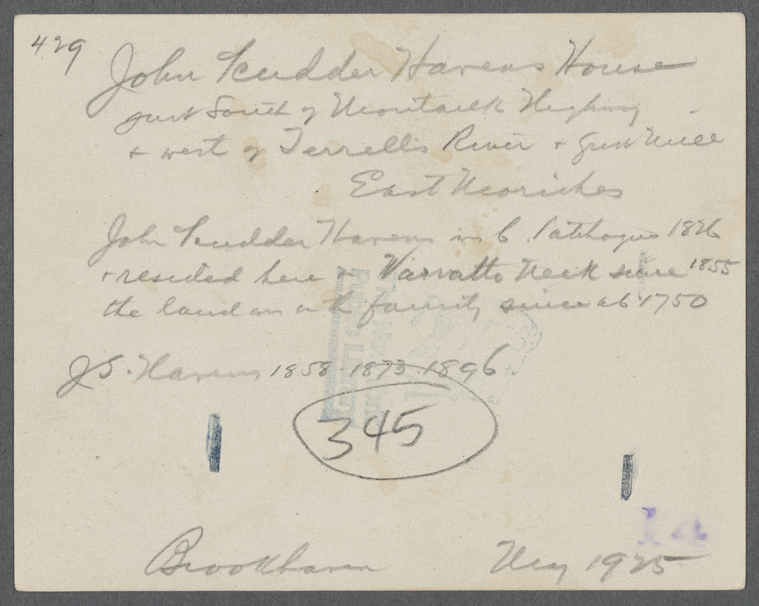 429
John Scudder Havens House
just South of Montauk Highway
+ west of Terrell's River + Grist Mill
East Moriches
John Scudder Havens was b. Patchogue 1826
+ resided here - Warratta Neck since 1855
the land in the family since ab 1750
J S. Havens 1858-1873-1896.
345
14
Brookhaven May 1925